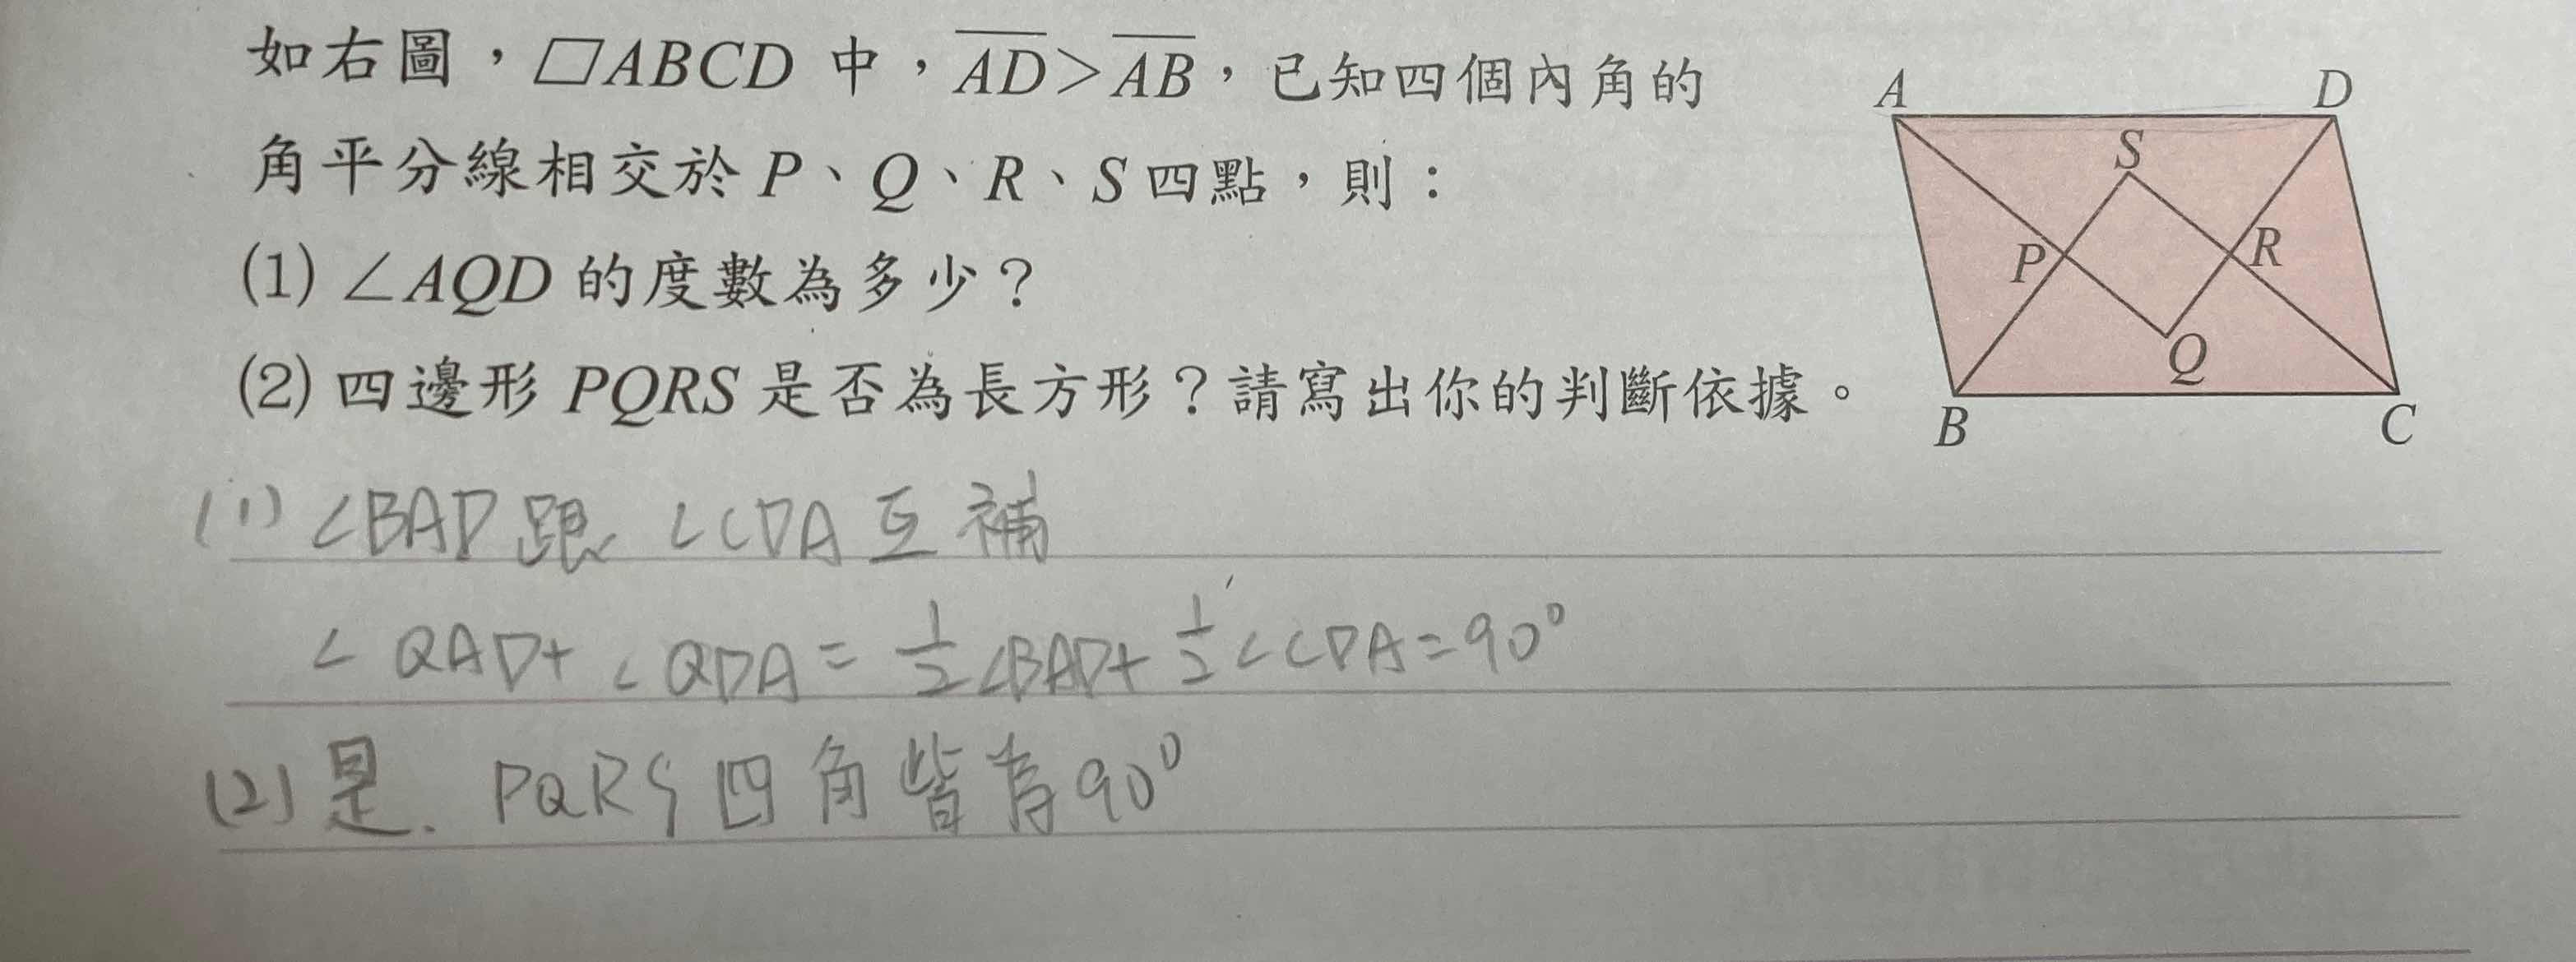 如右圖，▱ABCD 中，AD＞AB，已知四個內角的
角平分線相交於 P、Q、R、S 四點，則：
(1) ∠AQD 的度數為多少？
(2) 四邊形 PQRS 是否為長方形？請寫出你的判斷依據。
A
D
S
P
R
Q
B
C
(1) ∠BAD 跟 ∠CDA 互補
∠QAD+∠QDA=1/2∠BAD+1/2∠CDA=90°
(2) 是. PQRS 四角皆為90°